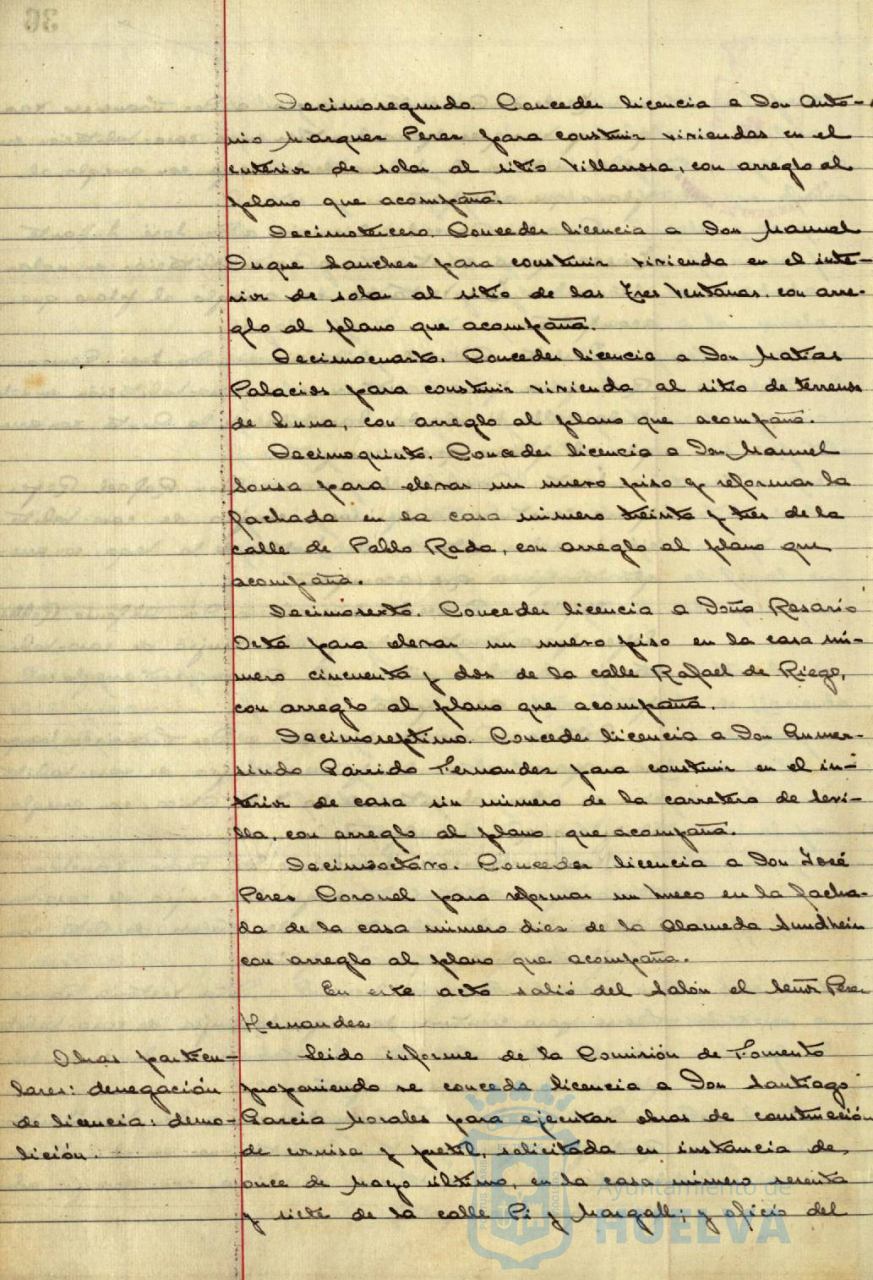 36
Decimosegundo. Conceder licencia a Don Anto-
nio Marquez Perez para construir viviendas en el
interior de solar al sitio Villarrosa, con arreglo al
plano que acompaña.
Decimotercero. Conceder licencia a Don Manuel
Duque Sanchez para construir vivienda en el inte-
rior de solar al sitio de las Tres Ventanas, con arre-
glo al plano que acompaña.
Decimocuarto. Conceder licencia a Don Matias
Palacios para construir vivienda al sitio de terrenos
de Luna, con arreglo al plano que acompaña.
Decimoquinto. Conceder licencia a Don Manuel
Sousa para elevar un nuevo piso y reformar la
fachada en la casa número treinta y tres de la
calle de Pablo Rada, con arreglo al plano que
acompaña.
Decimosexto. Conceder licencia a Doña Rosario
Orta para elevar un nuevo piso en la casa nú-
mero cincuenta y dos de la calle Rafael de Riego,
con arreglo al plano que acompaña.
Decimoseptimo. Conceder licencia a Don Gumer-
sindo Garrido Fernandez para construir en el in-
terior de casa sin número de la carretera de Sevi-
lla, con arreglo al plano que acompaña.
Decimooctavo. Conceder licencia a Don José
Perez Coronel para reformar un hueco en la facha-
da de la casa número diez de la Alameda Sundheim
con arreglo al plano que acompaña.
En este acto salió del Salón el Señor Perez
Hernandez
Obras particu-
lares: denegación
de licencia: demo-
lición.
Leido informe de la Comisión de Fomento
proponiendo se conceda licencia a Don Santiago
Garcia Morales para ejecutar obras de construcción
de cornisa y pretil, solicitada en instancia de
once de Mayo último, en la casa número sesenta
y siete de la calle Pi y Margall; y oficio del
Ayuntamiento de
HUELVA